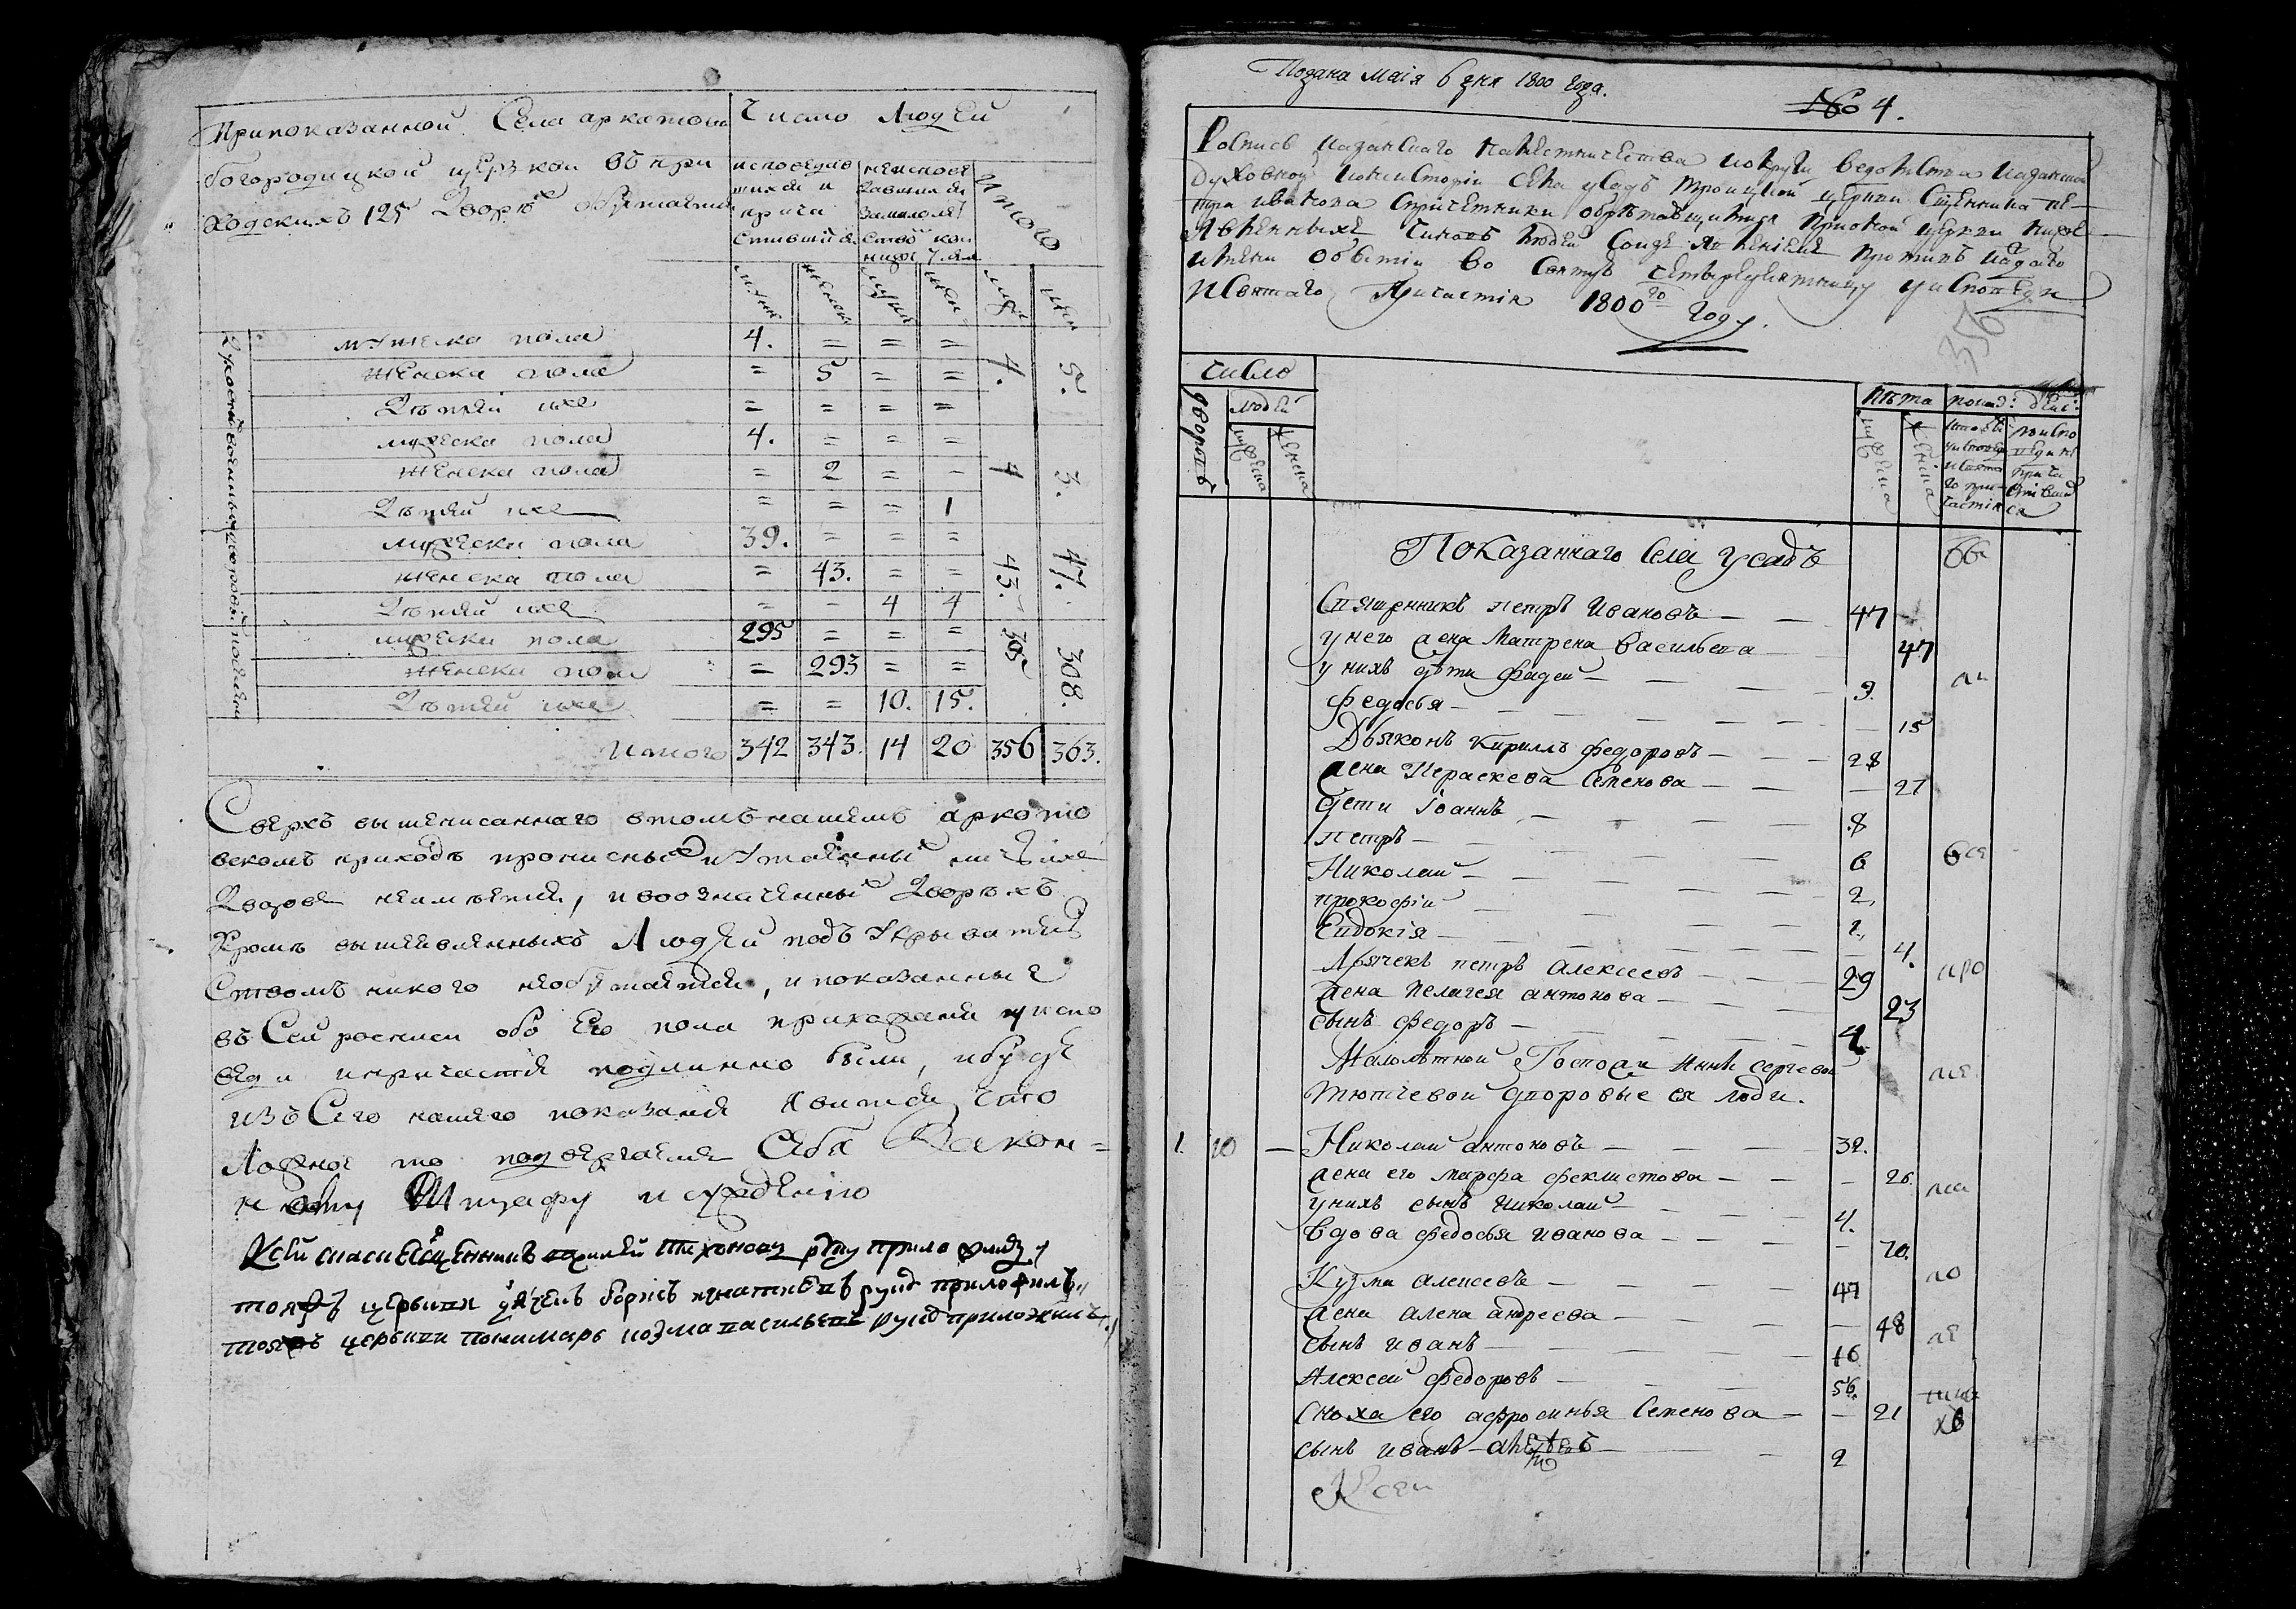 Припоказанной Села аркатова
богородицкой церквѣ въ при
ходскихъ 125 Дворѣхъ обрѣтается
Число Людей
исповедав
шихся и
прича
стившихся
неисповѣ
давшихся
замалолѣт
ством
ниже 7. лѣт
итого
муж жен муж жен муж жен
мужеска пола 4. = = = 4. 5.
женска пола = 5 = =
Дѣтей ихъ = = = =
мужеска пола 4. = = = 4 3.
женска пола = 2 = -
Дѣтей ихъ = = = 1
мужеска пола 39. = = = 43. 47.
женска пола = 43. = =
Дѣтей ихъ = - 4 4
мужеска пола 295 = = = 305 308.
женска пола = 293 = =
Дѣтей ихъ = = 10. 15.
Итого 342 343. 14 20 356 363.
Сверхъ вышеписаннаго втомъ нашемъ аркато
вскомъ приходѣ прописныхъ и утаенныхъ ничьихъ
Дворовъ неимѣется, и возначенныхъ Дворѣхъ
Кромѣ вышеявленныхъ Людей подъ Укрывател
Ствомъ никого необрѣтается, и показанные
въ Сей росписи обоего пола прихожани у испо
веди и причастія подлинно были, и буде
изъ Сего нашего показанія явится что
Ложное то подвергаемъ Себя Закон=
ному Штрафу и суждению
Ксей росписи Священникъ василей тихоновъ руку приложилъ
тояжъ церкви дьячекъ борисъ игнатьевъ руку приложилъ
тояжъ церкви пономарь козма васильевъ руку приложилъ
Подана маія 6 дня 1800 года.
№ 4.
Роспись казанскаго намѣстничества и округи ведомства казанской
Духовной консисторіи села усадъ троицкой церкви Священника пе-
тра иванова спричетники обрѣтающихся притой церкви ниже
явленныхъ чиновъ людей соизъявленіемъ противъ каждаго
имени о бытіи во святую четыредесятницу у исповеди
и святаго Причастія 1800го году.
356
число
дворовъ
людей
мужеска
женска
лѣта
мужеска
женска
показ: дейс:
Показаннаго Села усадъ
Священникъ петръ Ивановъ 47
у него жена Матрена Васильева 47
у нихъ дѣти Фадей 9.
Федосья 15
Дьяконъ Кириллъ Федоровъ 28
жена Параскева Семенова 27
дети Іоаннъ 8
петръ 6
Николай 2,
прокофій 1,
Евдокія 4.
Дьячекъ петръ алексеевъ 29
жена пелагея антонова 23
сынъ федоръ 4
Малолѣтной Госпожи Анны сергеевой
Тютчевой дворовые ея люди.
1. 10 Николай антоновъ 32.
жена его марфа феклистова 26.
у нихъ сынъ николай 4.
Вдова федосья иванова 70.
Кузма алексеевъ 47
жена алена андреева 48
сынъ иванъ 16
Алексей федоровъ 56.
сноха его афросинья Семенова 21
сынъ иванъ 2
Ксей